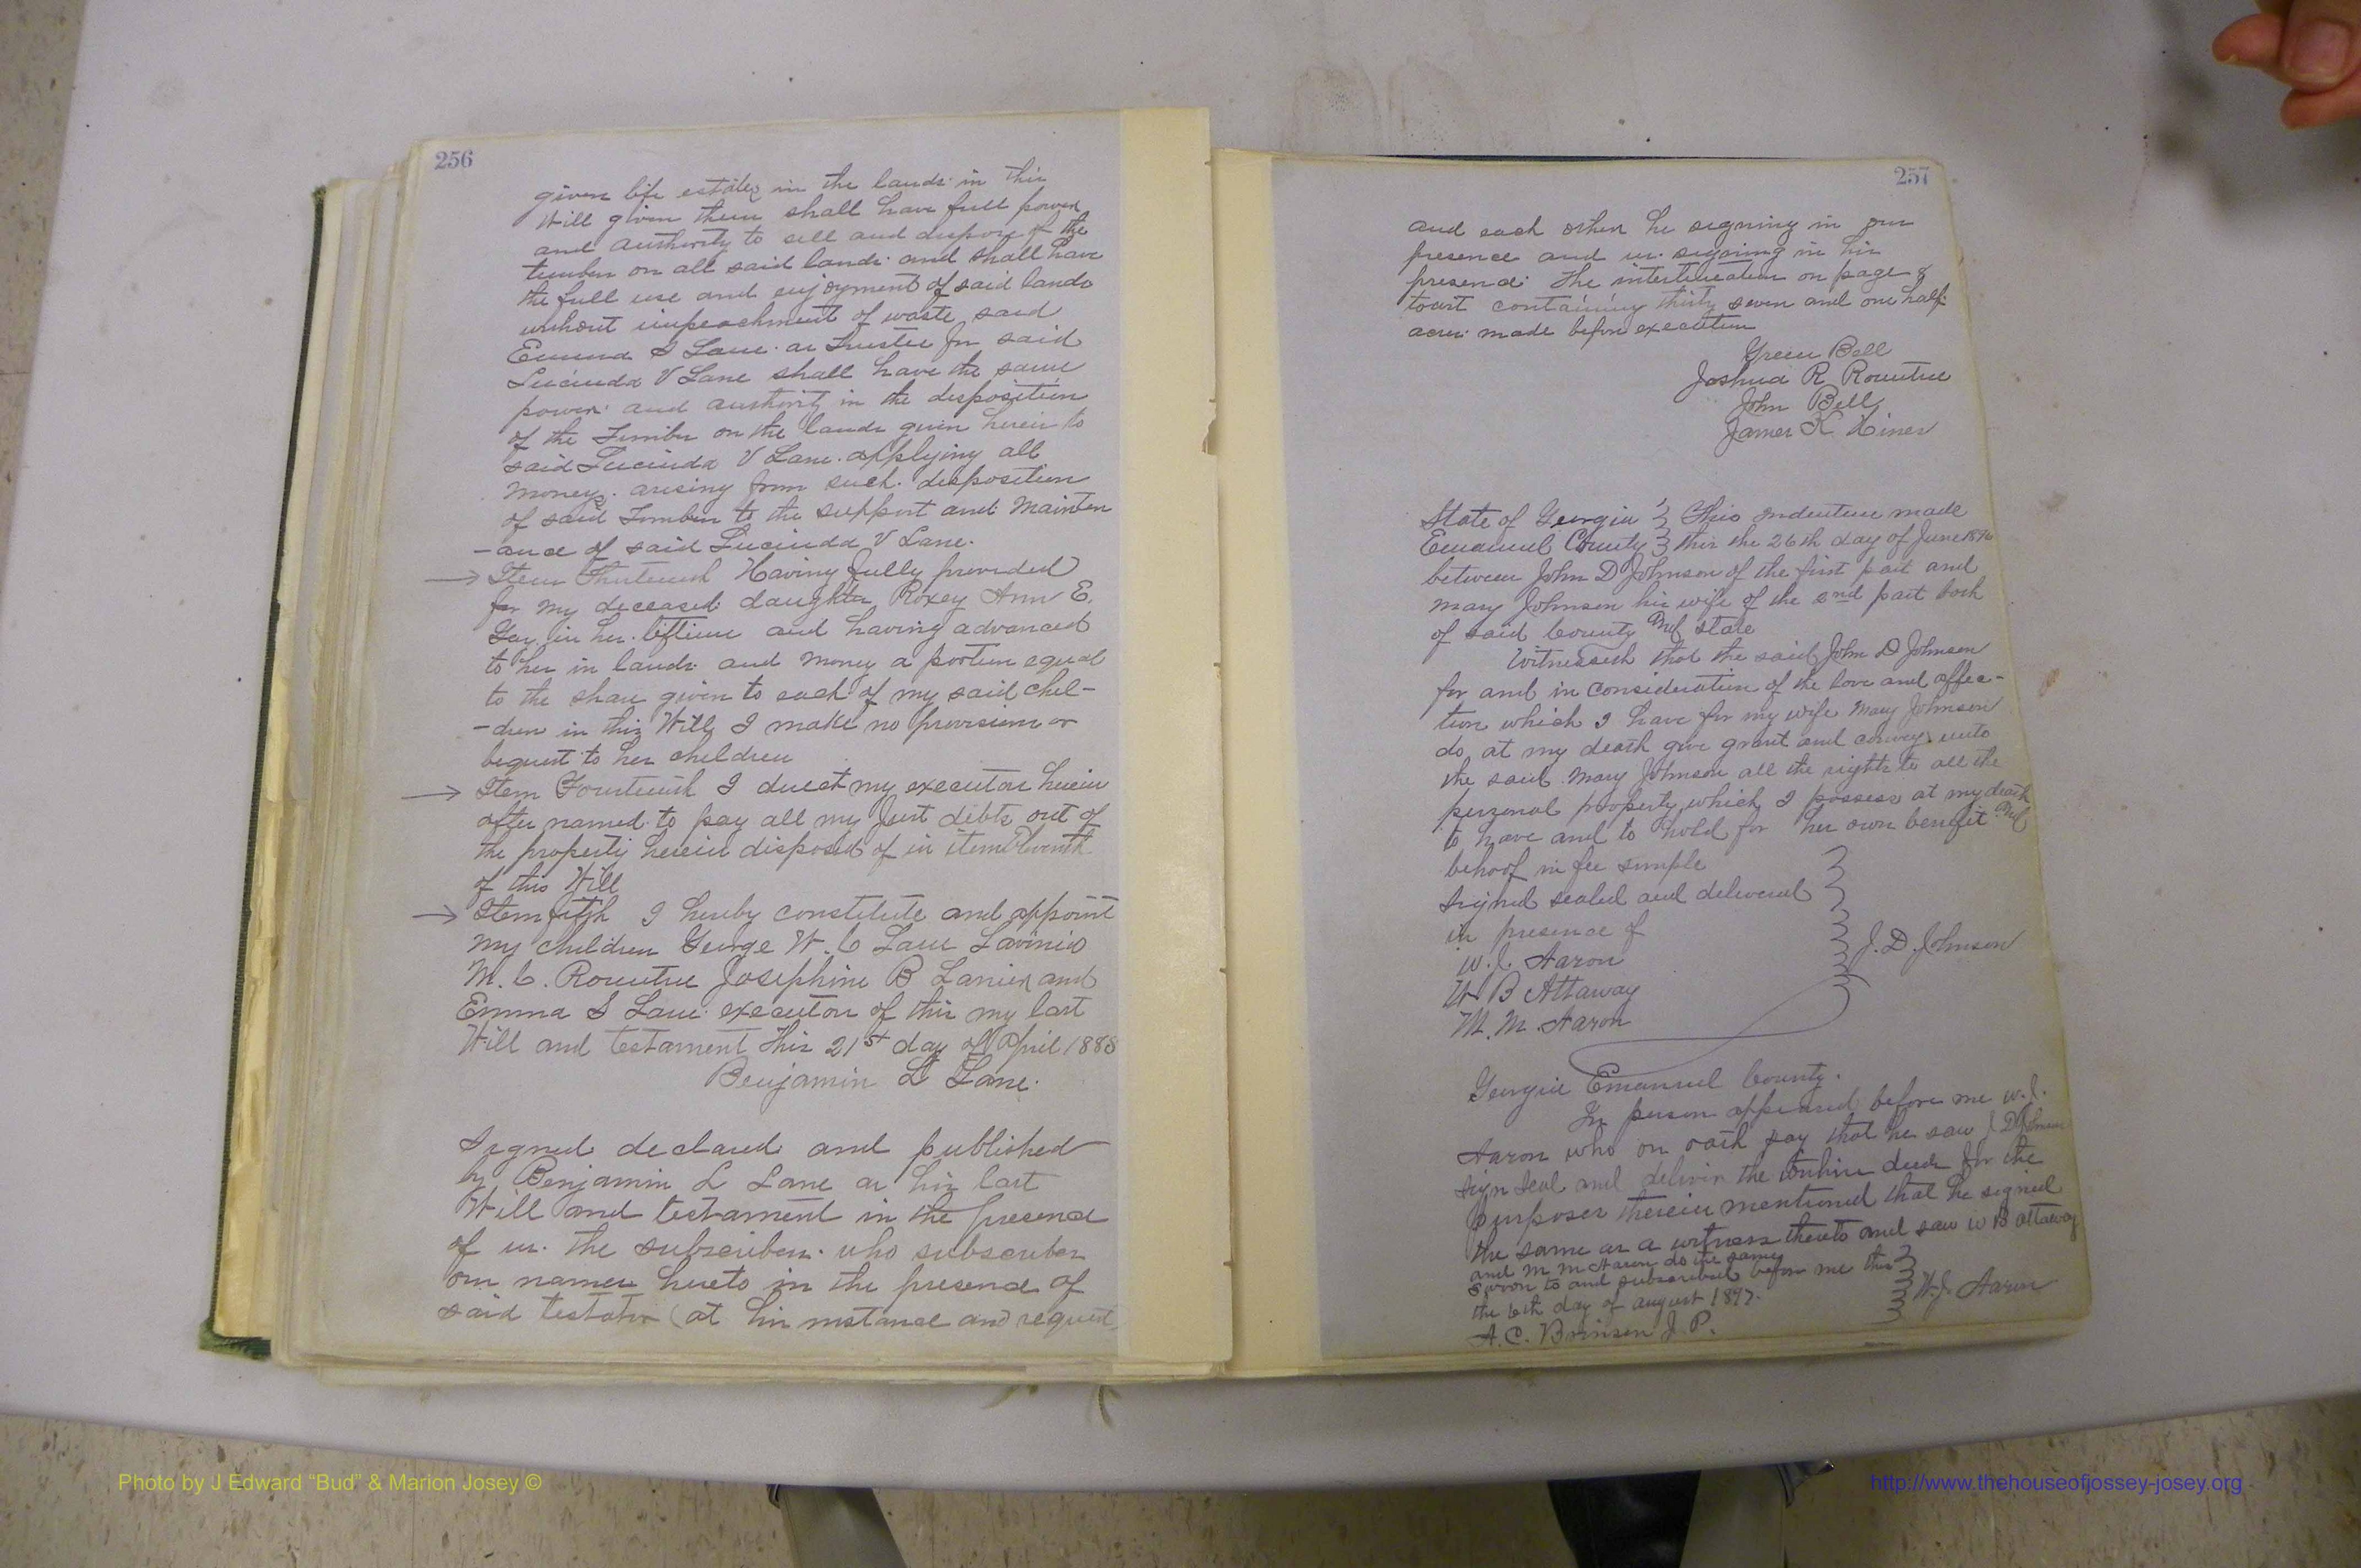 256
given life estates in the lands in this
Will given them shall have full power
and authority to sell and dispose of the
timber on all said lands and shall have
the full use and enjoyment of said lands
without impeachment of waste said
Emma S Lane as Trustee for said
Lucinda V Lane shall have the same
power and authority in the disposition
of the Timber on the lands given herein to
said Lucinda V Lane applying all
moneys arising from such disposition
of said Timber to the support and Mainten
-ance of said Lucinda V Lane.
Item Thirteenth Having fully provided
for my deceased daughter Roxey Ann E.
Gay in her lifetime and having advanced
to her in lands and money a portion equal
to the share given to each of my said chil-
-dren in this Will I make no provision or
bequest to her children
Item Fourteenth I direct my executors herein
after named to pay all my Just debts out of
the property herein disposed of in item Eleventh
of this Will
Item fifth I hereby constitute and appoint
my children George W. C Lane Lavinia
M. C. Rountree Josephine B Lanier and
Emma S Lane executors of this my last
Will and testament This 21st day of April 1888
Benjamin L Lane.
Signed declared and published
by Benjamin L Lane as his last
Will and testament in the presence
of us the subscribers who subscribes
our names hereto in the presence of
said testator (at his instance and request
257
and each other he signing in our
presence and us signing in his
presence The interlineation on page 8
towit containing thirty seven and one half
acres made before execution
Green Bell
Joshua R Rountree
John Bell
James K Hines
State of Georgia } This indenture made
Emanuel County } this the 26th day of June 1896
between John D Johnson of the first part and
Mary Johnson his wife of the 2nd part both
of said County and state
Witnesseth that the said John D Johnson
for and in consideration of the love and affec-
tion which I have for my wife Mary Johnson
do at my death give grant and convey unto
the said Mary Johnson all the rights to all the
personal property which I possess at my death
to have and to hold for her own benefit and
behoof in fee simple
Signed sealed and delivered
in presence of
W. J. Aaron
J. D. Johnson
W B Attaway
M. M. Aaron
Georgia Emanuel County.
In person appeared before me W. J.
Aaron who on oath say that he saw J D Johnson
sign seal and deliver the within deed for the
purposes therein mentioned that he signed
the same as a witness thereto and saw W B Attaway
and M M Aaron do the same
Sworn to and subscribed before me this
the 6th day of august 1897.
W. J. Aaron
A. C. Brinson J. P.
Photo by J Edward “Bud” & Marion Josey ©
http://www.thehouseofjossey-josey.org